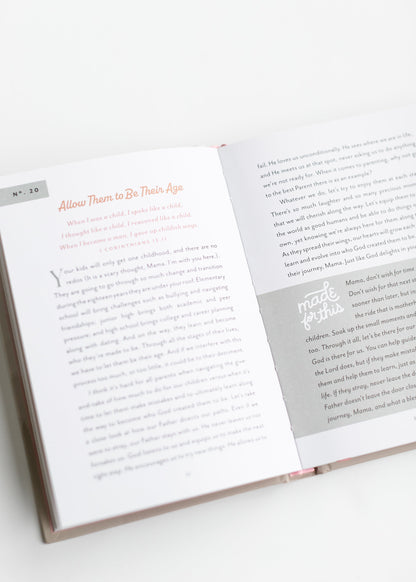 Nº. 20
Allow Them to Be Their Age
When I was a child, I spoke like a child,
I thought like a child, I reasoned like a child.
When I became a man, I gave up childish ways.
1 CORINTHIANS 13:11
Your kids will only get one childhood, and there are no
redos (It is a scary thought, Mama. I'm with you here.)
They are going to go through so much change and transition
during the eighteen years they are under your roof. Elementary
school will bring challenges such as bullying and navigating
friendships; junior high brings both academic and peer
pressure; and high school brings college and career planning
along with dating. And on the way, they learn and love
who they're made to be. Through all the stages of their lives,
we have to let them be their age. And if we interfere with this
process too much, or too little, it could be to their detriment.
I think it's hard for all parents when navigating the give
and take of how much to do for our children versus when it's
time to let them make mistakes and to ultimately learn along
the way to become who God created them to be. Let's take
a close look at how our Father directs our paths. Even if we
were to stray, our Father stays with us. He never leaves us nor
forsakes us. God listens to us and equips us to make the next
right step. He encourages us to try new things. He allows us to
fail. He loves us unconditionally. He sees where we are in life,
and He meets us at that spot, never asking us to do anything
we're not ready for. When it comes to parenting, why not
to the best Parent there is as an example?
Whatever we do, let's try to enjoy them at each
There's so much laughter and so many precious
that we will cherish along the way. Let's equip them
the world as good humans and be able to do things
own, yet knowing we're always here for them along
As they spread their wings, our hearts will grow
learn and evolve into who God created them to be
their journey, Mama. Just like God delights in
made
for this
Mama, don't wish for
Don't wish for that next
sooner than later, but in
the ride that is
children. Soak up the small moments and
too. Through it all, let's be there for our
God is there for us. You can help guide
the Lord does, but if they make
them and help them to learn, just
If they stray, never leave the
Father doesn't leave the door
journey, Mama, and what a